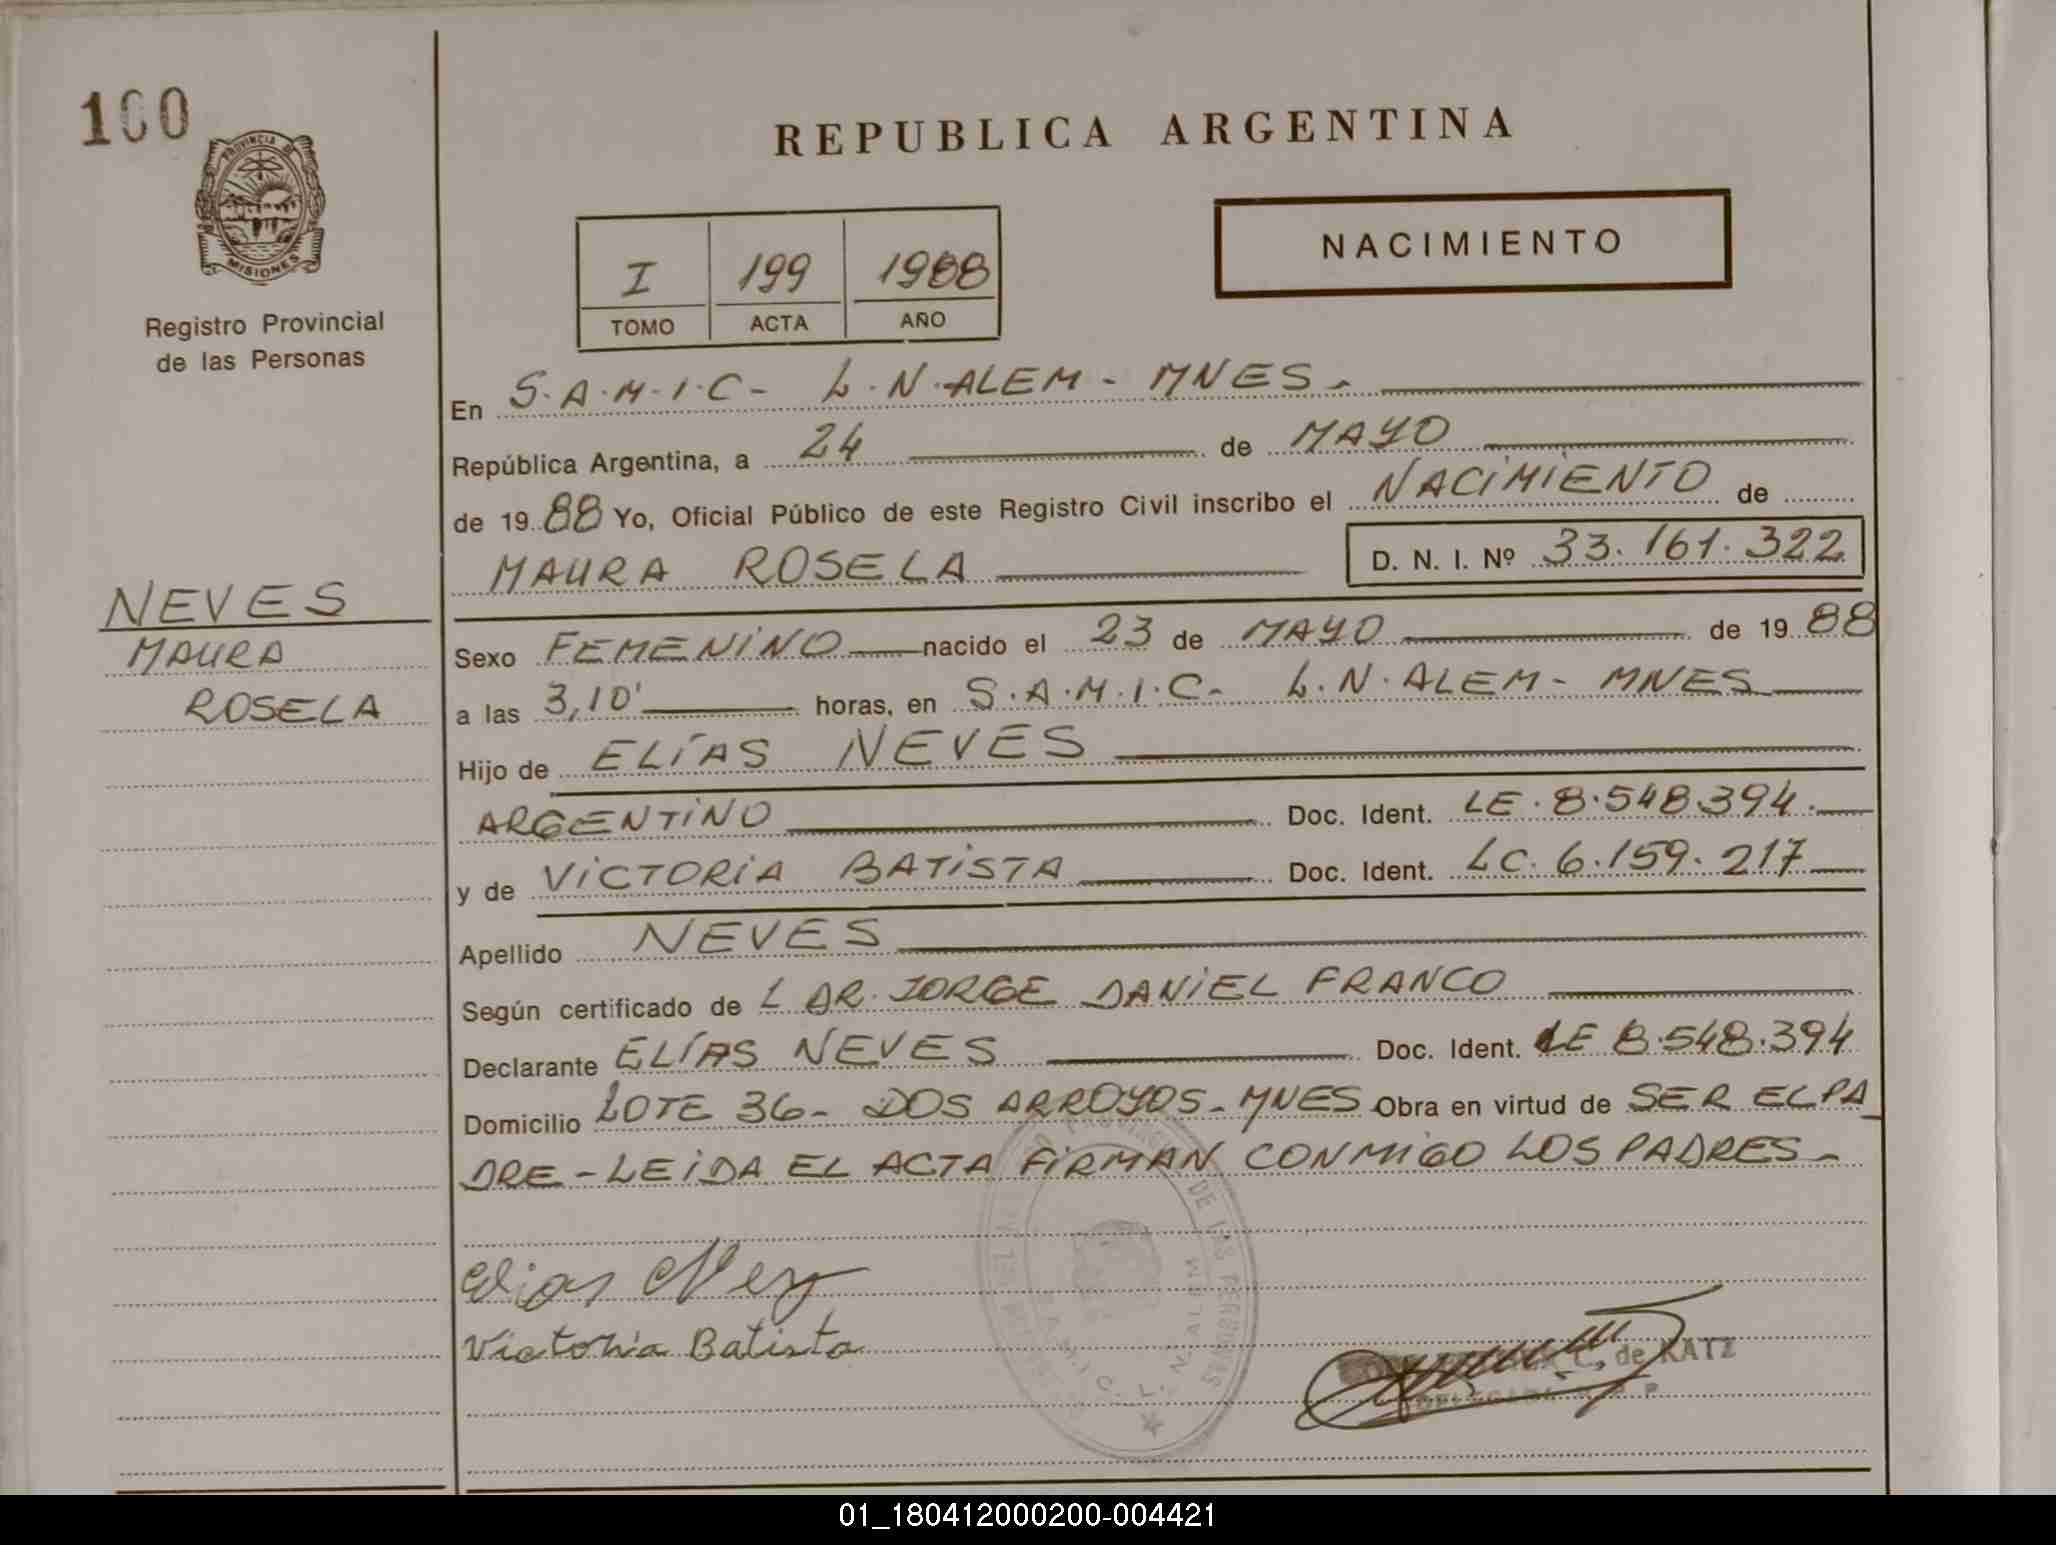 100
PROVINCIA DE
MISIONES
Registro Provincial
de las Personas
NEVES
MAURA
ROSELA
REPUBLICA ARGENTINA
I 199 1988
TOMO ACTA AÑO
NACIMIENTO
En S.A.M.I.C- L.N.ALEM - MNES.
República Argentina, a 24 de MAYO
de 1988 Yo, Oficial Público de este Registro Civil inscribo el NACIMIENTO de
MAURA ROSELA D. N. I. Nº 33.161.322
Sexo FEMENINO nacido el 23 de MAYO de 1988
a las 3,10' horas, en S.A.M.I.C- L.N.ALEM - MNES
Hijo de ELÍAS NEVES
ARGENTINO Doc. Ident. LE.8.548.394.
y de VICTORIA BATISTA Doc. Ident. LC.6.159.217
Apellido NEVES
Según certificado de L DR. JORGE DANIEL FRANCO
Declarante ELÍAS NEVES Doc. Ident. LE 8.548.394
Domicilio LOTE 36- DOS ARROYOS - MNES Obra en virtud de SER EL PA
DRE - LEIDA EL ACTA FIRMAN CONMIGO LOS PADRES -
Elias Neves
Victoria Batista
C. de KATZ
DELEGADA R. P. P
DE LAS PERSONAS
S.A.M.I.C. L.N.ALEM
01_180412000200-004421